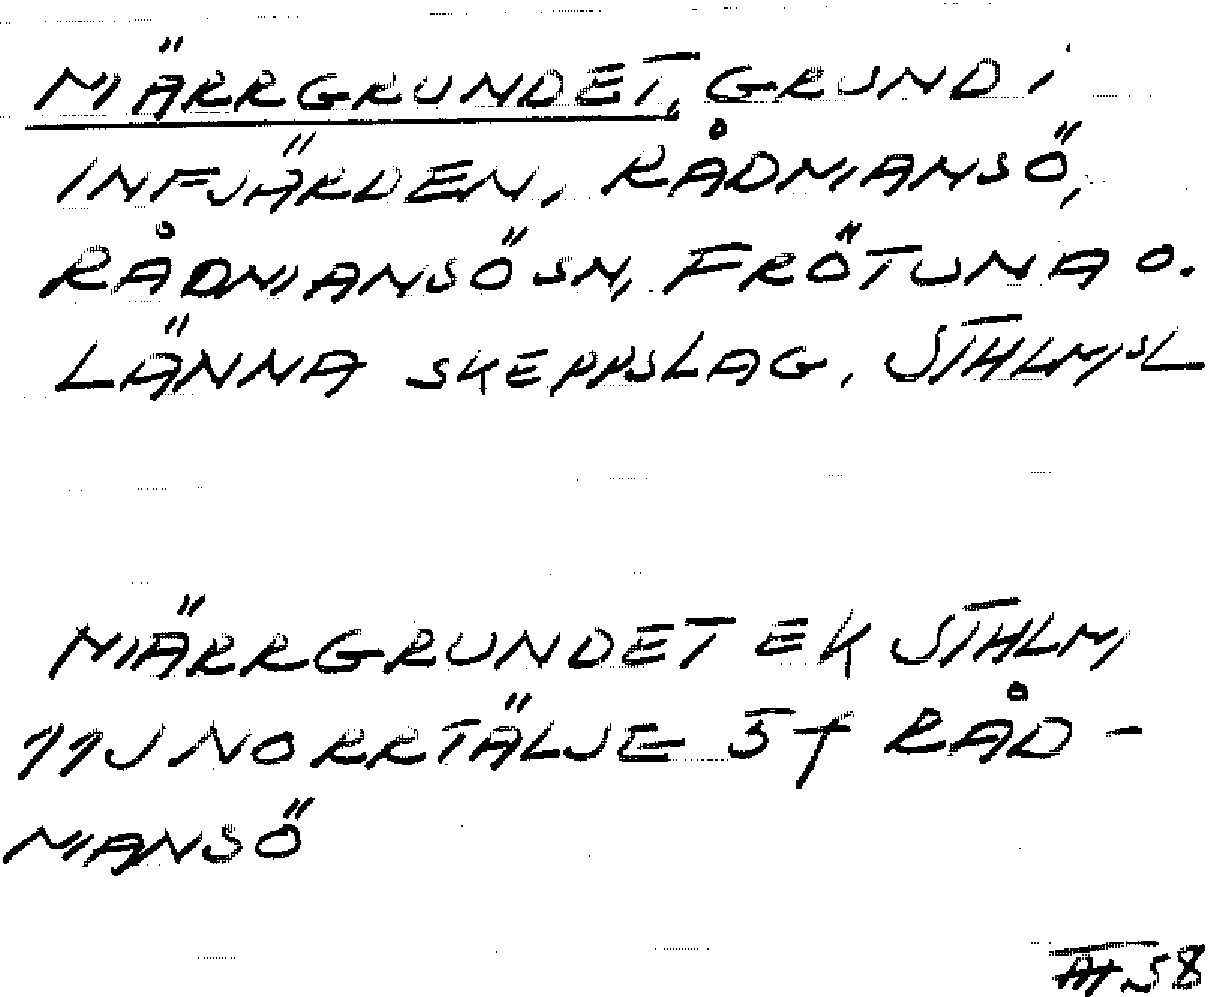 MÄRRGRUNDET, GRUND I
INFJÄRDEN, RÅDMANSÖ,
RÅDMANSÖ SN, FRÖTUNA O.
LÄNNA SKEPPSLAG, STHLMSL
MÄRRGRUNDET EK STHLM,
11J NORRTÄLJE 5f RÅD-
MANSÖ